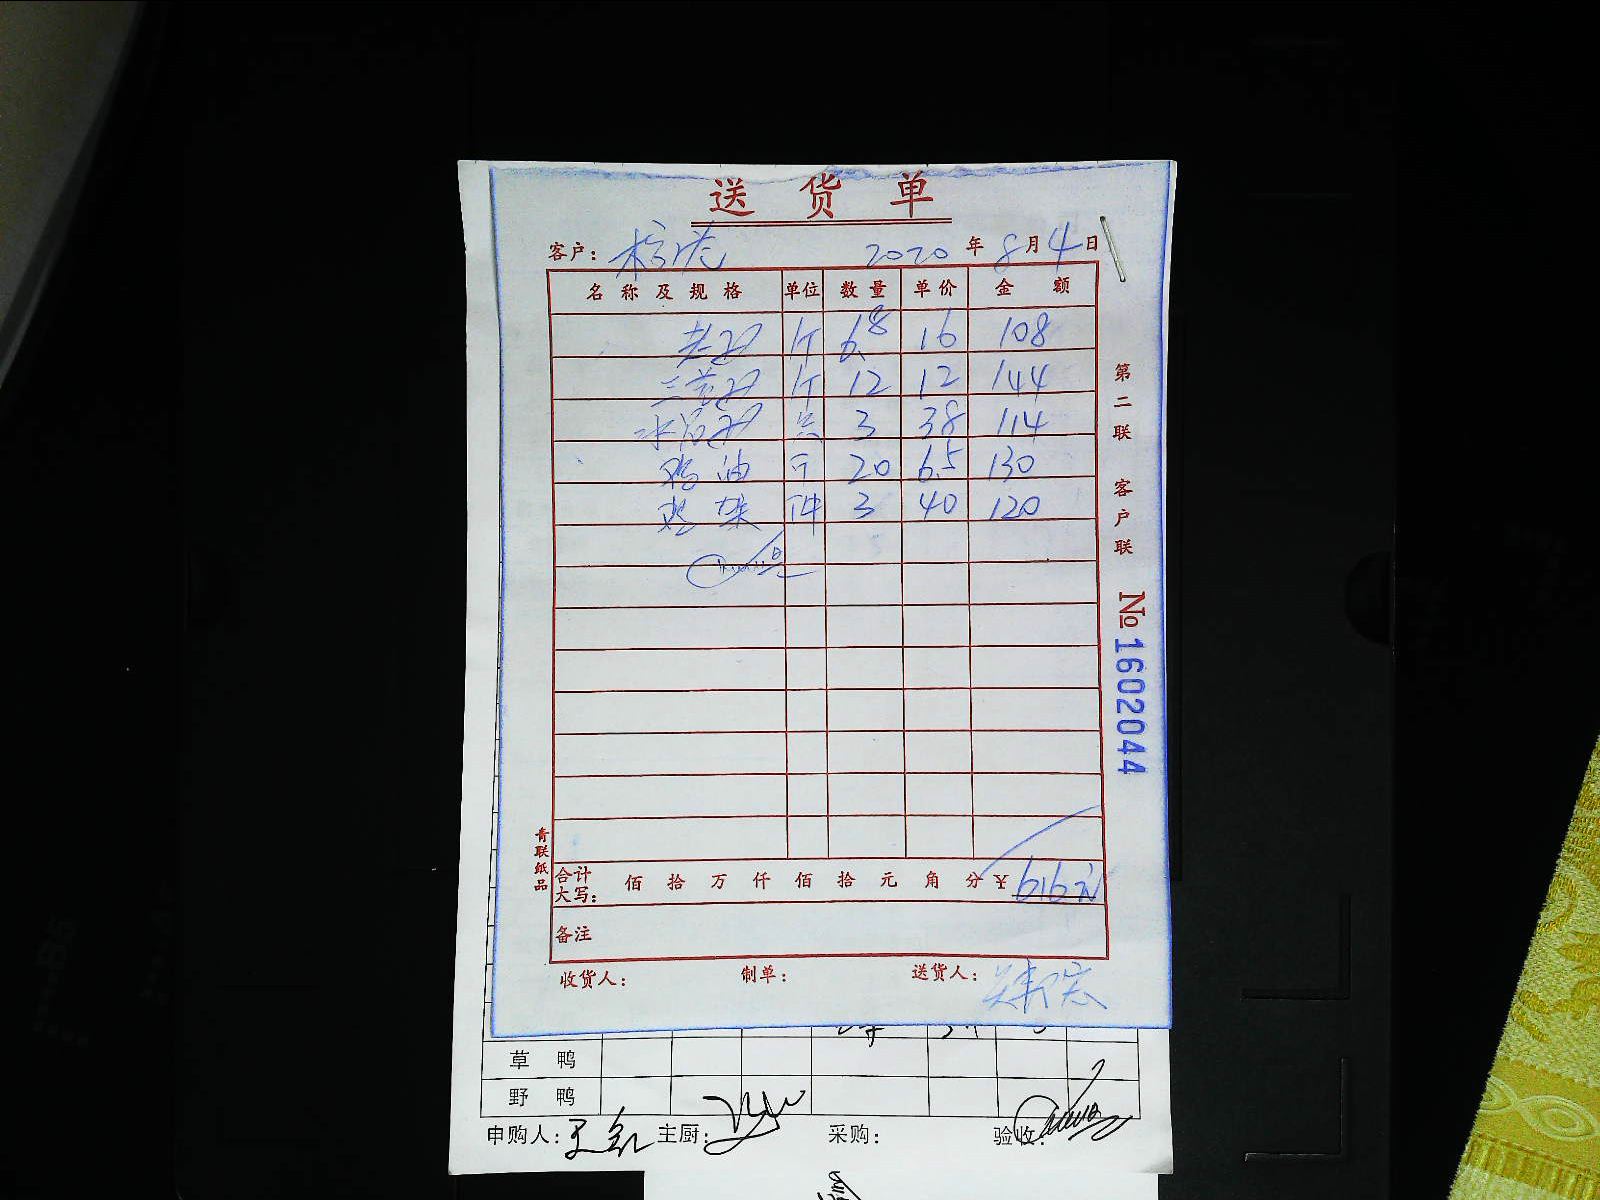 送货单
客户： 2020年8月4日
名称及规格 单位 数量 单价 金额
老鸡 斤 6.8 16 108
三黄鸡 斤 12 12 144
鸡 只 3 38 114
鸡油 斤 20 6.5 130
鸡架 件 3 40 120
第二联 客户联
№1602044
青联纸品
合计大写： 佰拾万仟佰拾元角分 ¥616元
备注
收货人： 制单： 送货人：
草鸭
野鸭
申购人： 主厨： 采购： 验收：